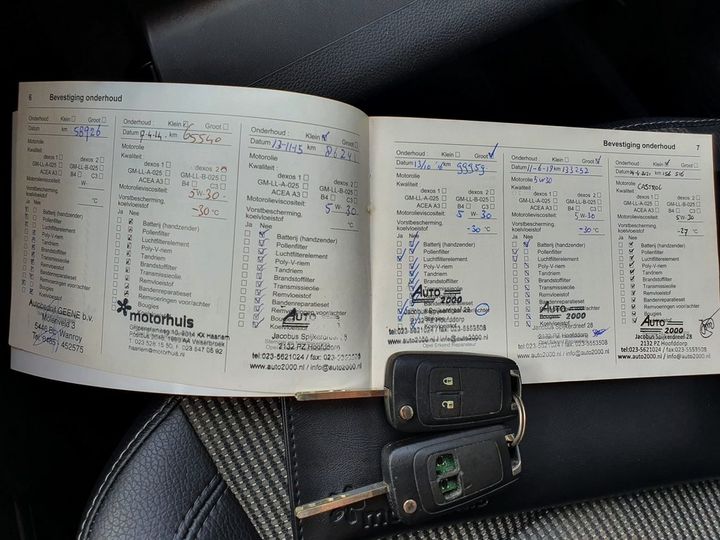 6 Bevestiging onderhoud
Onderhoud : Klein Groot
Datum km 58926
Motorolie
Kwaliteit
dexos 1 dexos 2
GM-LL-A-025 GM-LL-B-025
ACEA A3 B4 C3
W-
Motorolieviscositeit:
Vorstbescherming,
koelvloeistof °C
Ja Nee
Batterij (handzender)
Pollenfilter
Luchtfilterelement
Poly-V-riem
Tandriem
Brandstoffilter
Transmissie
Remvloeistof
Bandenreparatieset
Remvoeringen voor/achter
Autobedrijf GEENE b.v.
Molenveld 3
5446 Wanroy
452575
Onderhoud : Klein Groot
Datum 9-4-14 km 65540
Motorolie
Kwaliteit:
dexos 1 dexos 2
GM-LL-A-025 GM-LL-B-025
ACEA A3 B4 C3
Motorolieviscositeit: 5 W-30
Vorstbescherming,
koelvloeistof -30 °C
Ja Nee
Batterij (handzender)
Pollenfilter
Luchtfilterelement
Poly-V-riem
Tandriem
Brandstoffilter
Transmissie
Remvloeistof
Bandenreparatieset
Remvoeringen voor/achter
Bougies
motorhuis
Haarlem
Onderhoud : Klein Groot
Datum 13-11-15 km
Motorolie
Kwaliteit:
dexos 1 dexos 2
GM-LL-A-025 GM-LL-B-025
ACEA A3 B4 C3
Motorolieviscositeit:
5 W- 30
Vorstbescherming,
koelvloeistof °C
Ja Nee
Batterij (handzender)
Pollenfilter
Luchtfilterelement
Poly-V-riem
Tandriem
Brandstoffilter
Transmissie
Remvloeistof
Bandenreparatieset
Remvoeringen voor/achter
AUTO
2000
Jacobus Spijkerdreef 28
2132 PZ Hoofddorp
tel:023-5621024 / fax:023-5553508
www.auto2000.nl / info@auto2000.nl
Bevestiging onderhoud 7
Onderhoud : Klein Groot
Datum 13/10 km 99959
Motorolie
Kwaliteit:
dexos 1 dexos 2
GM-LL-A-025 GM-LL-B-025
ACEA A3 B4 C3
Motorolieviscositeit:
5 W-30
Vorstbescherming,
koelvloeistof -30 °C
Ja Nee
Batterij (handzender)
Pollenfilter
Luchtfilterelement
Poly-V-riem
Tandriem
Brandstoffilter
Transmissie
Remvloeistof
Bandenreparatieset
AUTO
2000
Jacobus Spijkerdreef 28
2132 PZ Hoofddorp
tel:023-5621024 / fax:023-5553508
www.auto2000.nl / info@auto2000.nl
Onderhoud : Klein Groot
Datum 11-6-19 km 133252
Motorolie
Kwaliteit:
dexos 1 dexos 2
GM-LL-A-025 GM-LL-B-025
ACEA A3 B4 C3
Motorolieviscositeit:
5 W-30
Vorstbescherming,
koelvloeistof -30 °C
Ja Nee
Batterij (handzender)
Pollenfilter
Luchtfilterelement
Poly-V-riem
Tandriem
Brandstoffilter
Transmissie
Remvloeistof
Bandenreparatieset
Remvoeringen voor/achter
AUTO
2000
Jacobus Spijkerdreef 28
2132 PZ Hoofddorp
tel:023-5621024 / fax:023-5553508
www.auto2000.nl / info@auto2000.nl
Onderhoud : Klein Groot
Datum km
Motorolie CASTROL
Kwaliteit: 5W30
dexos 1 dexos 2
GM-LL-A-025 GM-LL-B-025
ACEA A3 B4 C3
Motorolieviscositeit:
5 W-30
Vorstbescherming,
koelvloeistof -27 °C
Ja Nee
Batterij (handzender)
Pollenfilter
Luchtfilterelement
Poly-V-riem
Tandriem
Brandstoffilter
Transmissie
Remvloeistof
Bandenreparatieset
Remvoeringen voor/achter
Bougies
AUTO
2000
Jacobus Spijkerdreef 28
2132 PZ Hoofddorp
tel:023-5621024 / fax:023-5553508
www.auto2000.nl / info@auto2000.nl